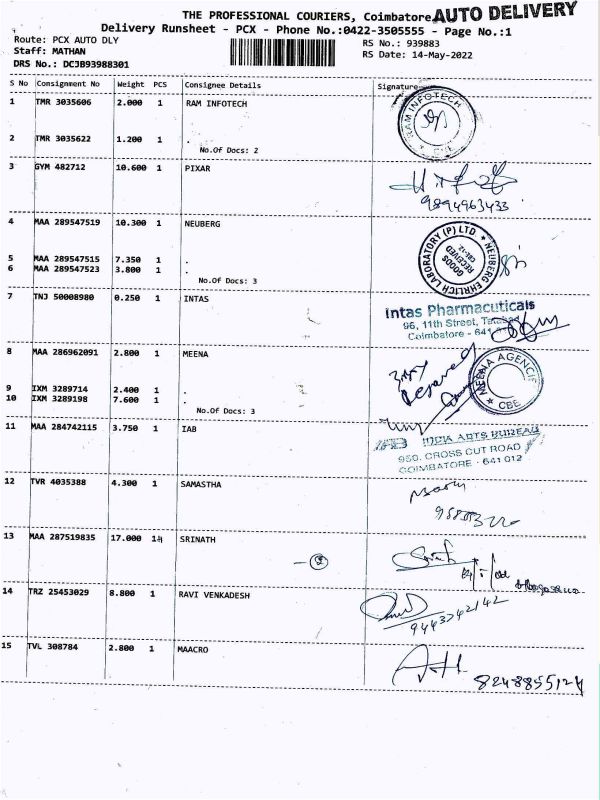 THE PROFESSIONAL COURIERS, Coimbatore AUTO DELIVERY
Delivery Runsheet - PCX - Phone No.:0422-3505555 - Page No.:1
Route: PCX AUTO DLY RS No.: 939883
Staff: MATHAN RS Date: 14-May-2022
DRS No.: DCJB93988301
S No Consignment No Weight PCS Consignee Details Signature
1 TMR 3035606 2.000 1 RAM INFOTECH
RAM INFOTECH CBE
2 TMR 3035622 1.200 1 .
No.Of Docs: 2
3 GYM 482712 10.600 1 PIXAR
9894963433
4 MAA 289547519 10.300 1 NEUBERG
NEUBERG EHRLICH LABORATORY (P) LTD
GOODS RECEIVED
5 MAA 289547515 7.350 1 .
6 MAA 289547523 3.800 1 .
No.Of Docs: 3
7 TNJ 50008980 0.250 1 INTAS
Intas Pharmacuticals
96, 11th Street,
Coimbatore - 641
8 MAA 286962091 2.800 1 MEENA
MEENA AGENCIE CBE
9 IXM 3289714 2.400 1 .
10 IXM 3289198 7.600 1 .
No.Of Docs: 3
11 MAA 284742115 3.750 1 IAB
IAB INDIA ARTS BUREAU
950, CROSS CUT ROAD
COIMBATORE - 641 012
12 TVR 4035388 4.300 1 SAMASTHA
13 MAA 287519835 17.000 14 SRINATH
14 TRZ 25453029 8.800 1 RAVI VENKADESH
9443342142
15 TVL 308784 2.800 1 MAACRO
8248855124